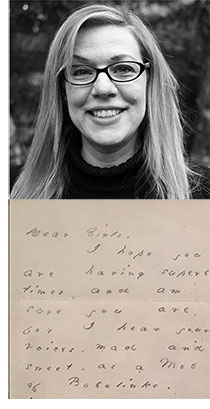 Dear Girls.
I hope you
are having superb
times, and am
sure you are.
For I hear your
voices. mad and
sweet. as a Mob
of Bobolinks.